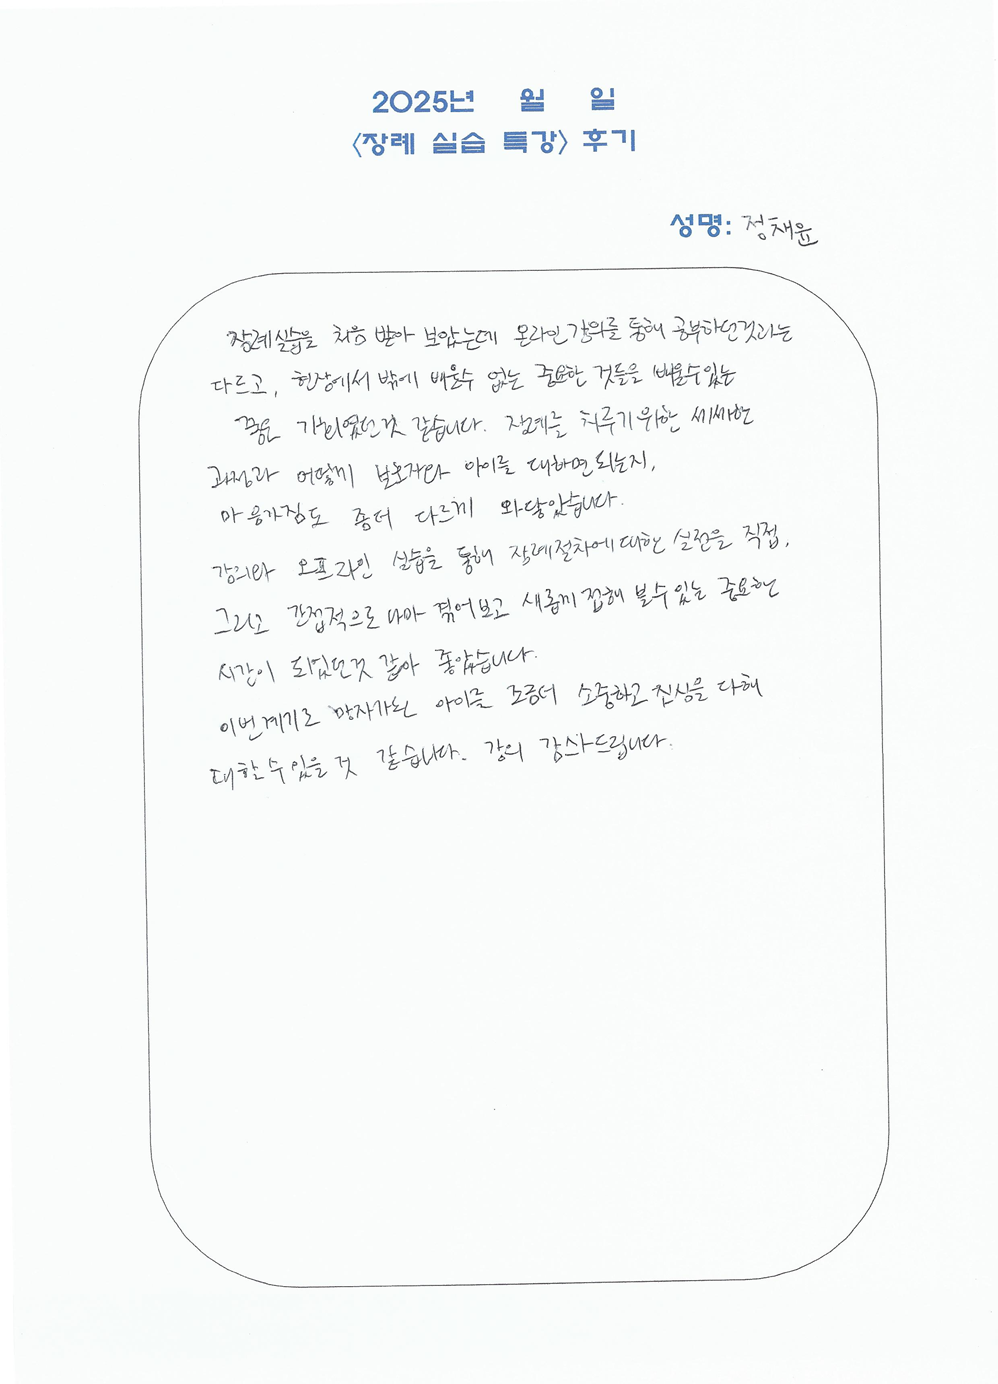 2025년 월 일
<장례 실습 특강> 후기
성명: 정채윤
장례실습을 처음 받아 보았는데 온라인강의를 통해 공부하던것과는
다르고, 현장에서 밖에 배울수 없는 중요한 것들을 배울수있는
좋은 기회였던것 같습니다. 장례를 치루기위한 세세한
과정과 어떻게 보호자와 아이를 대하면되는지,
마음가짐도 좀더 다르게 와닿았습니다.
강의와 오프라인 실습을 통해 장례절차에대한 실전을 직접,
그리고 간접적으로나마 겪어보고 새롭게 접해 볼수있는 중요한
시간이 되었던것 같아 좋았습니다.
이번계기로 망자가된 아이를 조금더 소중하고 진심을 다해
대할수있을것 같습니다. 강의 감사드립니다.